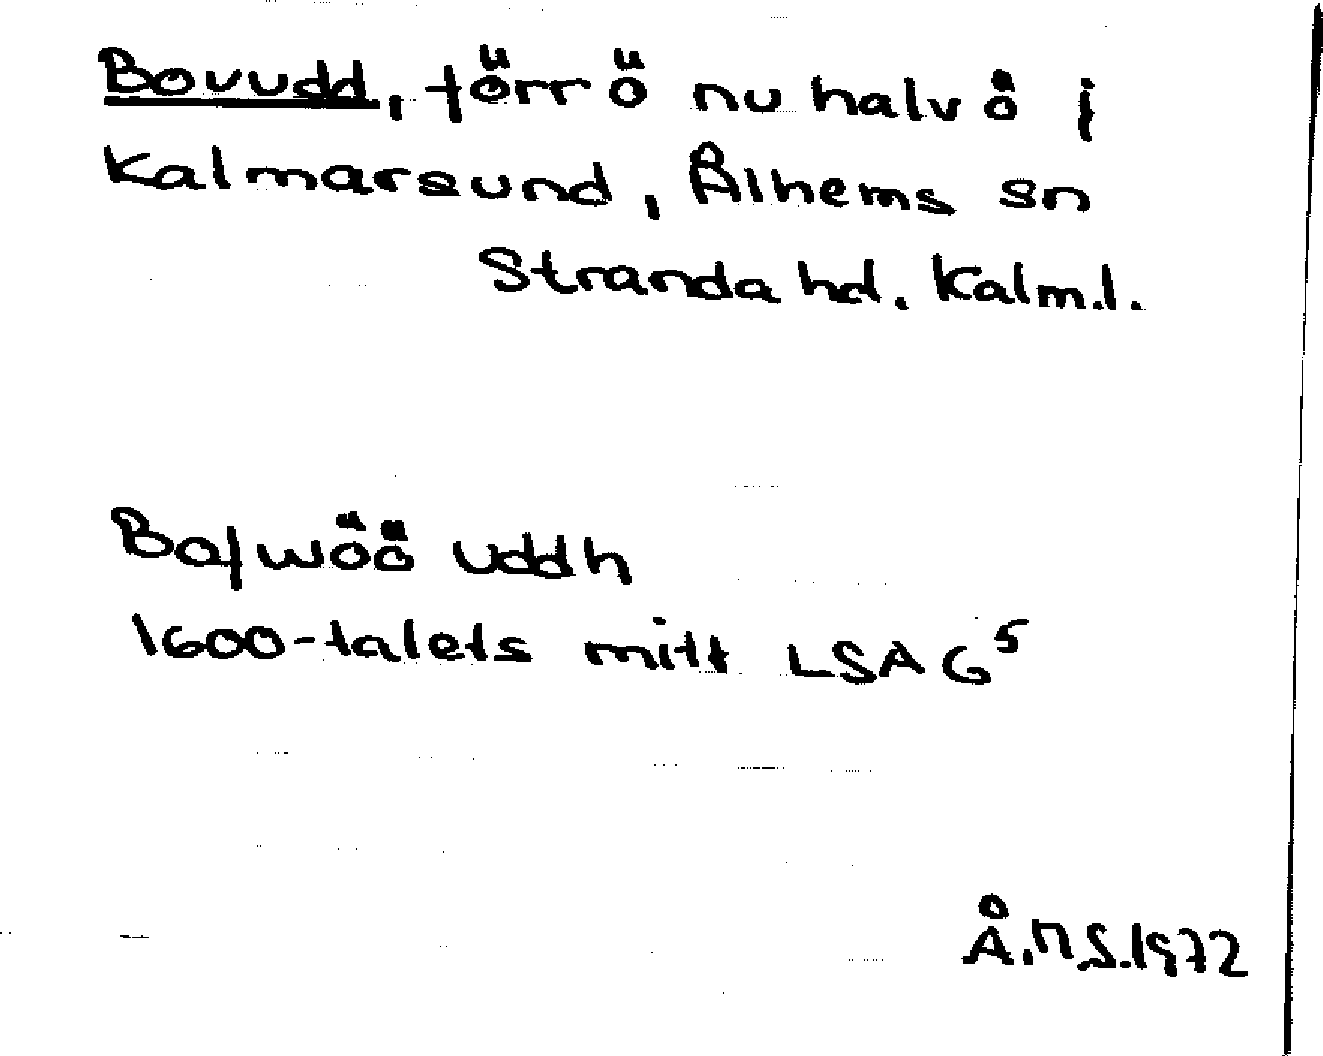 Bovudd, förr ö nu halvö i
Kalmarsund, Ålhems sn
Stranda hd. Kalm.l.
Bo/wöö uddh
1600-talets mitt LSA G5
Å.M S.1972